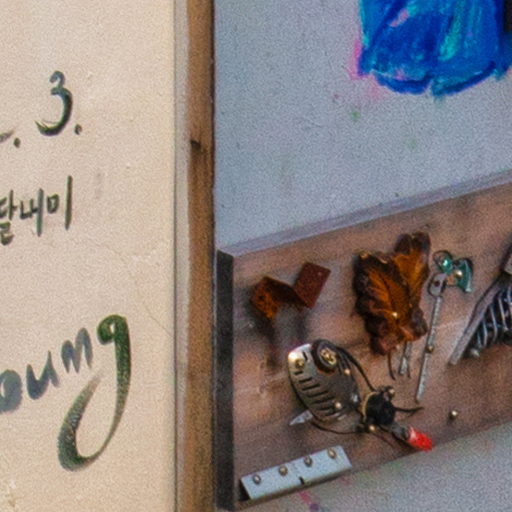 . 3.
달내미
oung